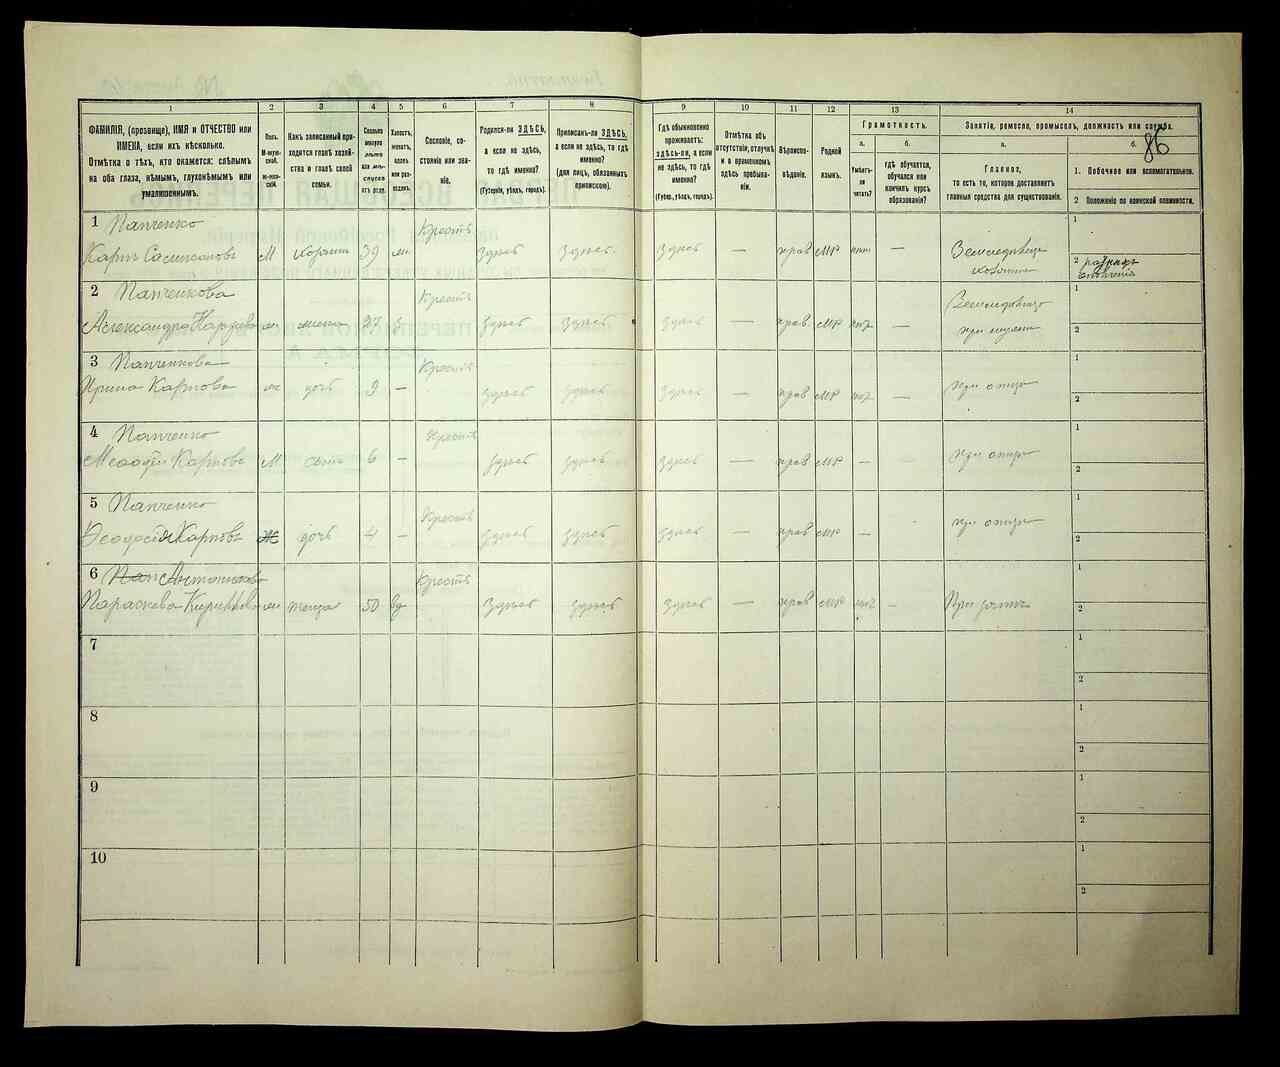 86
1
2
3
4
5
6
7
8
9
10
11
12
13
14
ФАМИЛІЯ, (прозвище), ИМЯ и ОТЧЕСТВО или
ИМЕНА, если ихъ нѣсколько.
Отмѣтка о тѣхъ, кто окажется: слѣпымъ
на оба глаза, нѣмымъ, глухонѣмымъ или
умалишеннымъ.
Полъ.
Какъ записанный при-
ходится главѣ хозяй-
ства и главѣ своей
семьи.
Сколько
минуло
лѣтъ
или мѣ-
сяцевъ
отъ роду.
Холостъ,
женатъ,
вдовъ
или раз-
веденъ.
Сословіе, со-
стояніе или зва-
ніе.
Родился-ли ЗДѢСЬ,
а если не здѣсь,
то гдѣ именно?
(Губернія, уѣздъ, городъ).
Приписанъ-ли ЗДѢСЬ,
а если не здѣсь, то гдѣ
именно?
(для лицъ, обязанныхъ
припискою).
Гдѣ обыкновенно
проживаетъ:
здѣсь-ли, а если
не здѣсь, то гдѣ
именно?
(Губер., уѣздъ, городъ).
Отмѣтка объ
отсутствіи, отлучкѣ
и о временномъ
здѣсь пребыва-
ніи.
Вѣроиспо-
вѣданіе.
Родной
языкъ.
Грамотность.
а.
б.
Умѣетъ-
ли
читать?
гдѣ обучается,
обучался или
кончилъ курсъ
образованія?
Занятіе, ремесло, промыселъ, должность или служба.
а.
б.
Главное,
то есть то, которое доставляетъ
главныя средства для существованія.
1. Побочное или вспомогательное.
2 Положеніе по воинской повинности.
1 Панченко
Карпъ
М хозяинъ 39
Крестъ
здѣсь здѣсь здѣсь — прав МР —
Земледѣлецъ
хозяинъ
1
2
2 Панченкова
Александра
жена 37
Крестъ
здѣсь здѣсь здѣсь — прав МР —
при мужѣ
1
2
3 Панченкова
Ирина Карпова
дочь 9 —
Крестъ
здѣсь здѣсь здѣсь — прав МР —
при отцѣ
1
2
4 Панченко
Меѳодій Карповъ
М сынъ 6 —
Крестъ
здѣсь здѣсь здѣсь — прав МР — —
при отцѣ
1
2
5 Панченко
Ѳеодосія Карпова
Ж дочь 4 —
Крестъ
здѣсь здѣсь здѣсь — прав МР —
при отцѣ
1
2
6
Параскева
теща 50 вд
Крестъ
здѣсь здѣсь здѣсь — прав МР —
При зятѣ
1
2
7
1
2
8
1
2
9
1
2
10
1
2